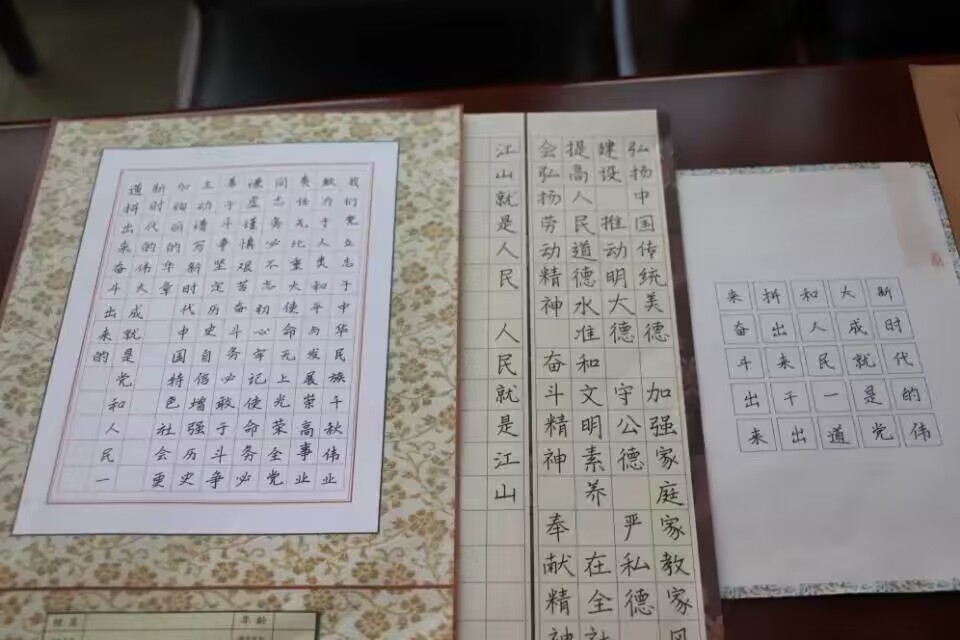 我们党立志于中华民族千秋伟业
致力于人类和平与发展崇高事业
任无比重大使命无上光荣全党
同志务必不忘初心牢记使命务必
谦虚谨慎艰苦奋斗务必敢于斗争
善于斗争坚定历史自信增强历史
主动谱写新时代中国特色社会更
加绚丽的华章
新时代的伟大成就是党和人民一
道拼出来奋斗出来的
姓名
年龄
弘扬中国传统美德 加强家庭家教家风
建设 推动明大德 守公德 严私德
提高人民道德水准和文明素养 在全社
会弘扬劳动精神 奋斗精神 奉献精神
江山就是人民 人民就是江山
新时代的伟
大成就是党
和人民一道
拼出来干出
来奋斗出来